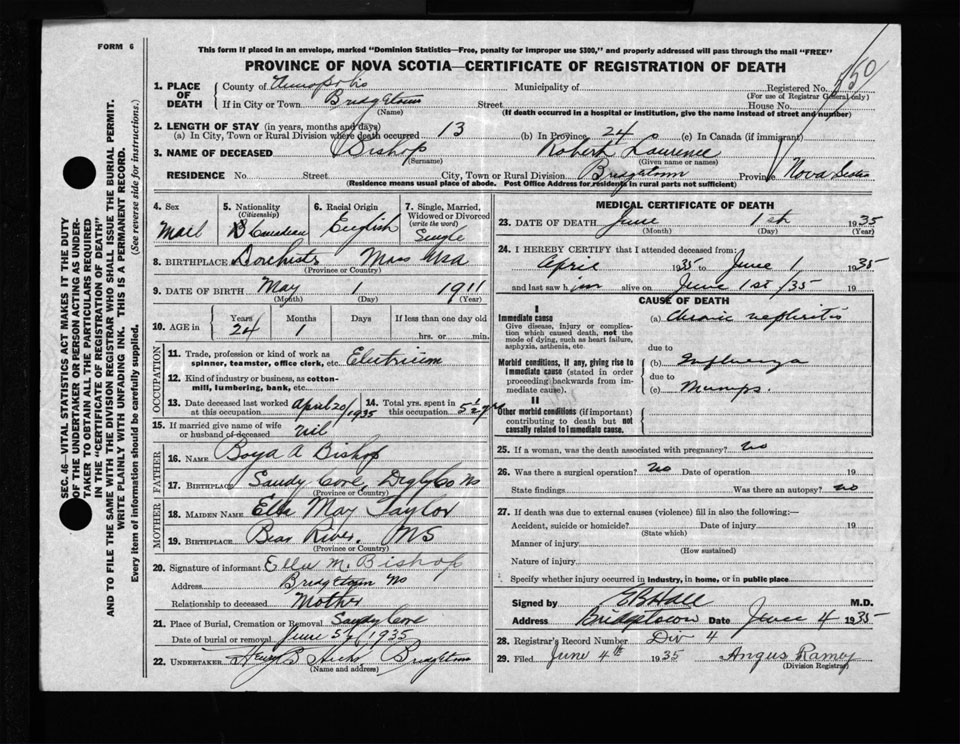 FORM 6
This form if placed in an envelope, marked "Dominion Statistics—Free, penalty for improper use $300," and properly addressed will pass through the mail "FREE"
PROVINCE OF NOVA SCOTIA—CERTIFICATE OF REGISTRATION OF DEATH
1. PLACE OF DEATH
County of Annapolis Municipality of Registered No. 550
(For use of Registrar General only)
If in City or Town Bridgetown Street House No.
(Name) (If death occurred in a hospital or institution, give the name instead of street and number)
2. LENGTH OF STAY (in years, months and days)
(a) In City, Town or Rural Division where death occurred 13 (b) In Province 24 (c) In Canada (if immigrant)
3. NAME OF DECEASED Bishop Robert Lawrence
(Surname) (Given name or names)
RESIDENCE No. Street City, Town or Rural Division Bridgetown Province Nova Scotia
(Residence means usual place of abode. Post Office Address for residents in rural parts not sufficient)
4. Sex Male
5. Nationality (Citizenship) B Canadian
6. Racial Origin English
7. Single, Married, Widowed or Divorced (write the word) Single
8. BIRTHPLACE Dorchester Mass USA
(Province or Country)
9. DATE OF BIRTH May 1 1911
(Month) (Day) (Year)
10. AGE in Years 24 Months 1 Days If less than one day old hrs. or min.
OCCUPATION
11. Trade, profession or kind of work as spinner, teamster, office clerk, etc. Electrician
12. Kind of industry or business, as cotton-mill, lumbering, bank, etc.
13. Date deceased last worked at this occupation April 20/1935
14. Total yrs. spent in this occupation 5½ yrs
15. If married give name of wife or husband of deceased nil
FATHER
16. NAME Boyd A Bishop
17. BIRTHPLACE Sandy Cove, Digby Co NS
(Province or Country)
MOTHER
18. MAIDEN NAME Ella May Taylor
19. BIRTHPLACE Bear River, NS
(Province or Country)
20. Signature of informant Ella M. Bishop
Address Bridgetown NS
Relationship to deceased Mother
21. Place of Burial, Cremation or Removal Sandy Cove
Date of burial or removal June 5th/1935
22. UNDERTAKER Henry B Hicks Bridgetown
(Name and address)
MEDICAL CERTIFICATE OF DEATH
23. DATE OF DEATH June 1st 1935
(Month) (Day) (Year)
24. I HEREBY CERTIFY that I attended deceased from:
April 1935 to June 1 1935
and last saw him alive on June 1st/35 19
CAUSE OF DEATH
I
Immediate cause
Give disease, injury or complication which caused death, not the mode of dying, such as heart failure, asphyxia, asthenia, etc.
(a) Chronic nephritis
due to
Morbid conditions, if any, giving rise to immediate cause (stated in order proceeding backwards from immediate cause).
(b) Influenza
due to
(c) Mumps.
II
Other morbid conditions (if important) contributing to death but not causally related to immediate cause.
25. If a woman, was the death associated with pregnancy? no
26. Was there a surgical operation? No Date of operation 19
State findings Was there an autopsy? no
27. If death was due to external causes (violence) fill in also the following:—
Accident, suicide or homicide? Date of injury 19
(State which)
Manner of injury
(How sustained)
Nature of injury
Specify whether injury occurred in industry, in home, or in public place
Signed by E B Hall M.D.
Address Bridgetown Date June 4 1935
28. Registrar's Record Number Div 4
29. Filed June 4th 1935 Angus Ramey
(Division Registrar)
SEC. 46—VITAL STATISTICS ACT MAKES IT THE DUTY
OF THE UNDERTAKER OR PERSON ACTING AS UNDER-
TAKER TO OBTAIN ALL THE PARTICULARS REQUIRED
IN THE "CERTIFICATE OF REGISTRATION OF DEATH"
AND TO FILE THE SAME WITH THE DIVISION REGISTRAR WHO SHALL ISSUE THE BURIAL PERMIT.
WRITE PLAINLY WITH UNFADING INK. THIS IS A PERMANENT RECORD.
Every item of information should be carefully supplied. (See reverse side for instructions.)